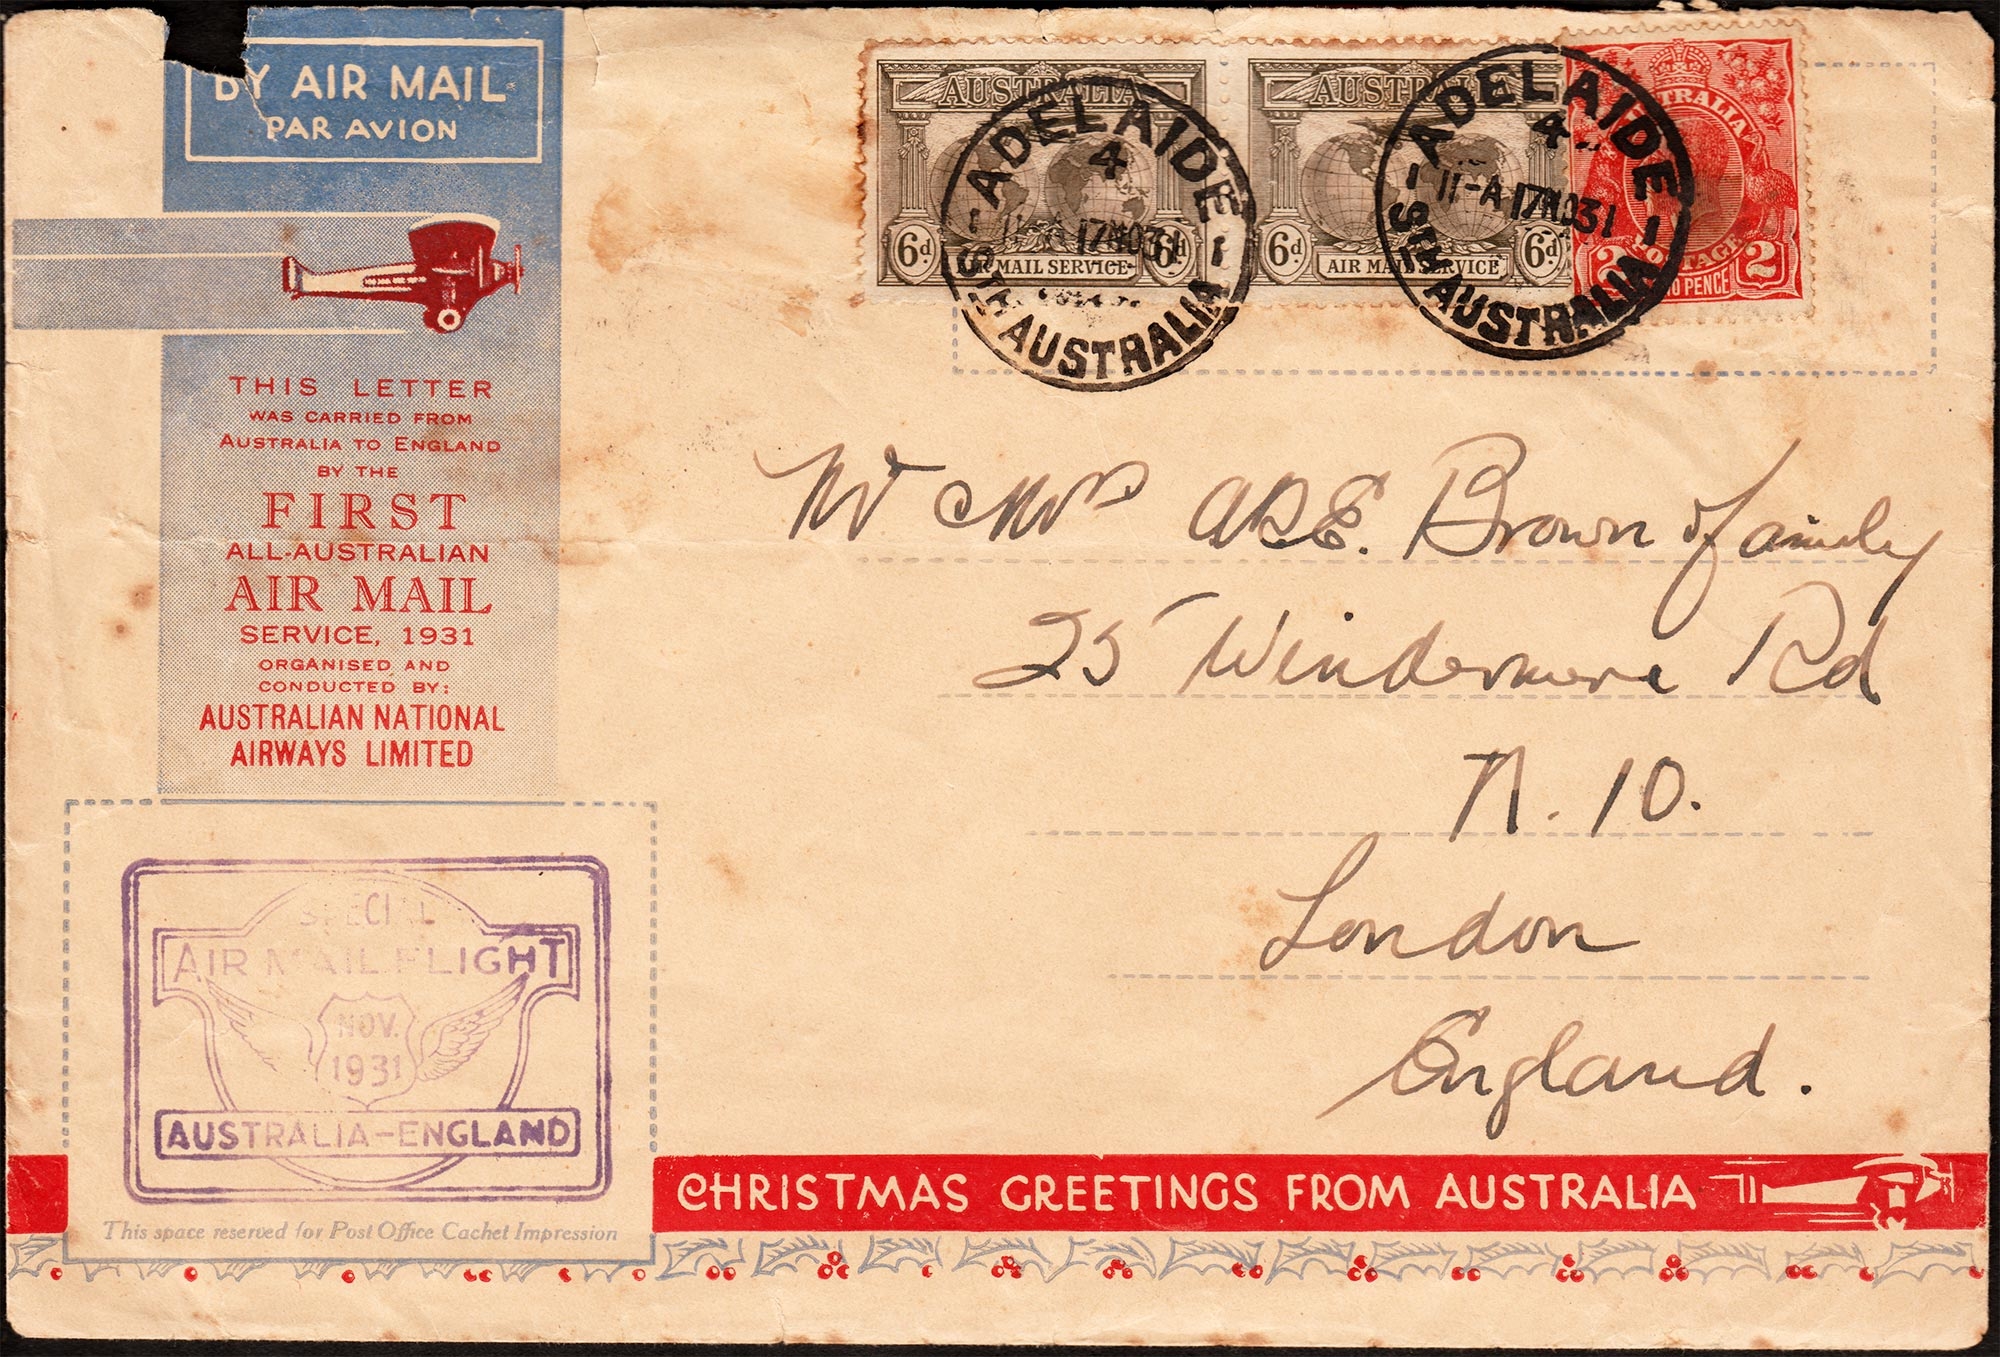 BY AIR MAIL
PAR AVION
THIS LETTER
WAS CARRIED FROM
AUSTRALIA TO ENGLAND
BY THE
FIRST
ALL-AUSTRALIAN
AIR MAIL
SERVICE, 1931
ORGANISED AND
CONDUCTED BY:
AUSTRALIAN NATIONAL
AIRWAYS LIMITED
AUSTRALIA
6d
AIR MAIL SERVICE
6d
AUSTRALIA
6d
AIR MAIL SERVICE
6d
AUSTRALIA
POSTAGE
2 TWO PENCE 2
ADELAIDE
4
11-A 17NO31
STH AUSTRALIA
ADELAIDE
4
11-A 17NO31
STH AUSTRALIA
Mr & Mrs A.E. Brown & family
25 Windermere Rd
N. 10.
London
England.
SPECIAL
AIR MAIL FLIGHT
NOV.
1931
AUSTRALIA-ENGLAND
This space reserved for Post Office Cachet Impression
CHRISTMAS GREETINGS FROM AUSTRALIA